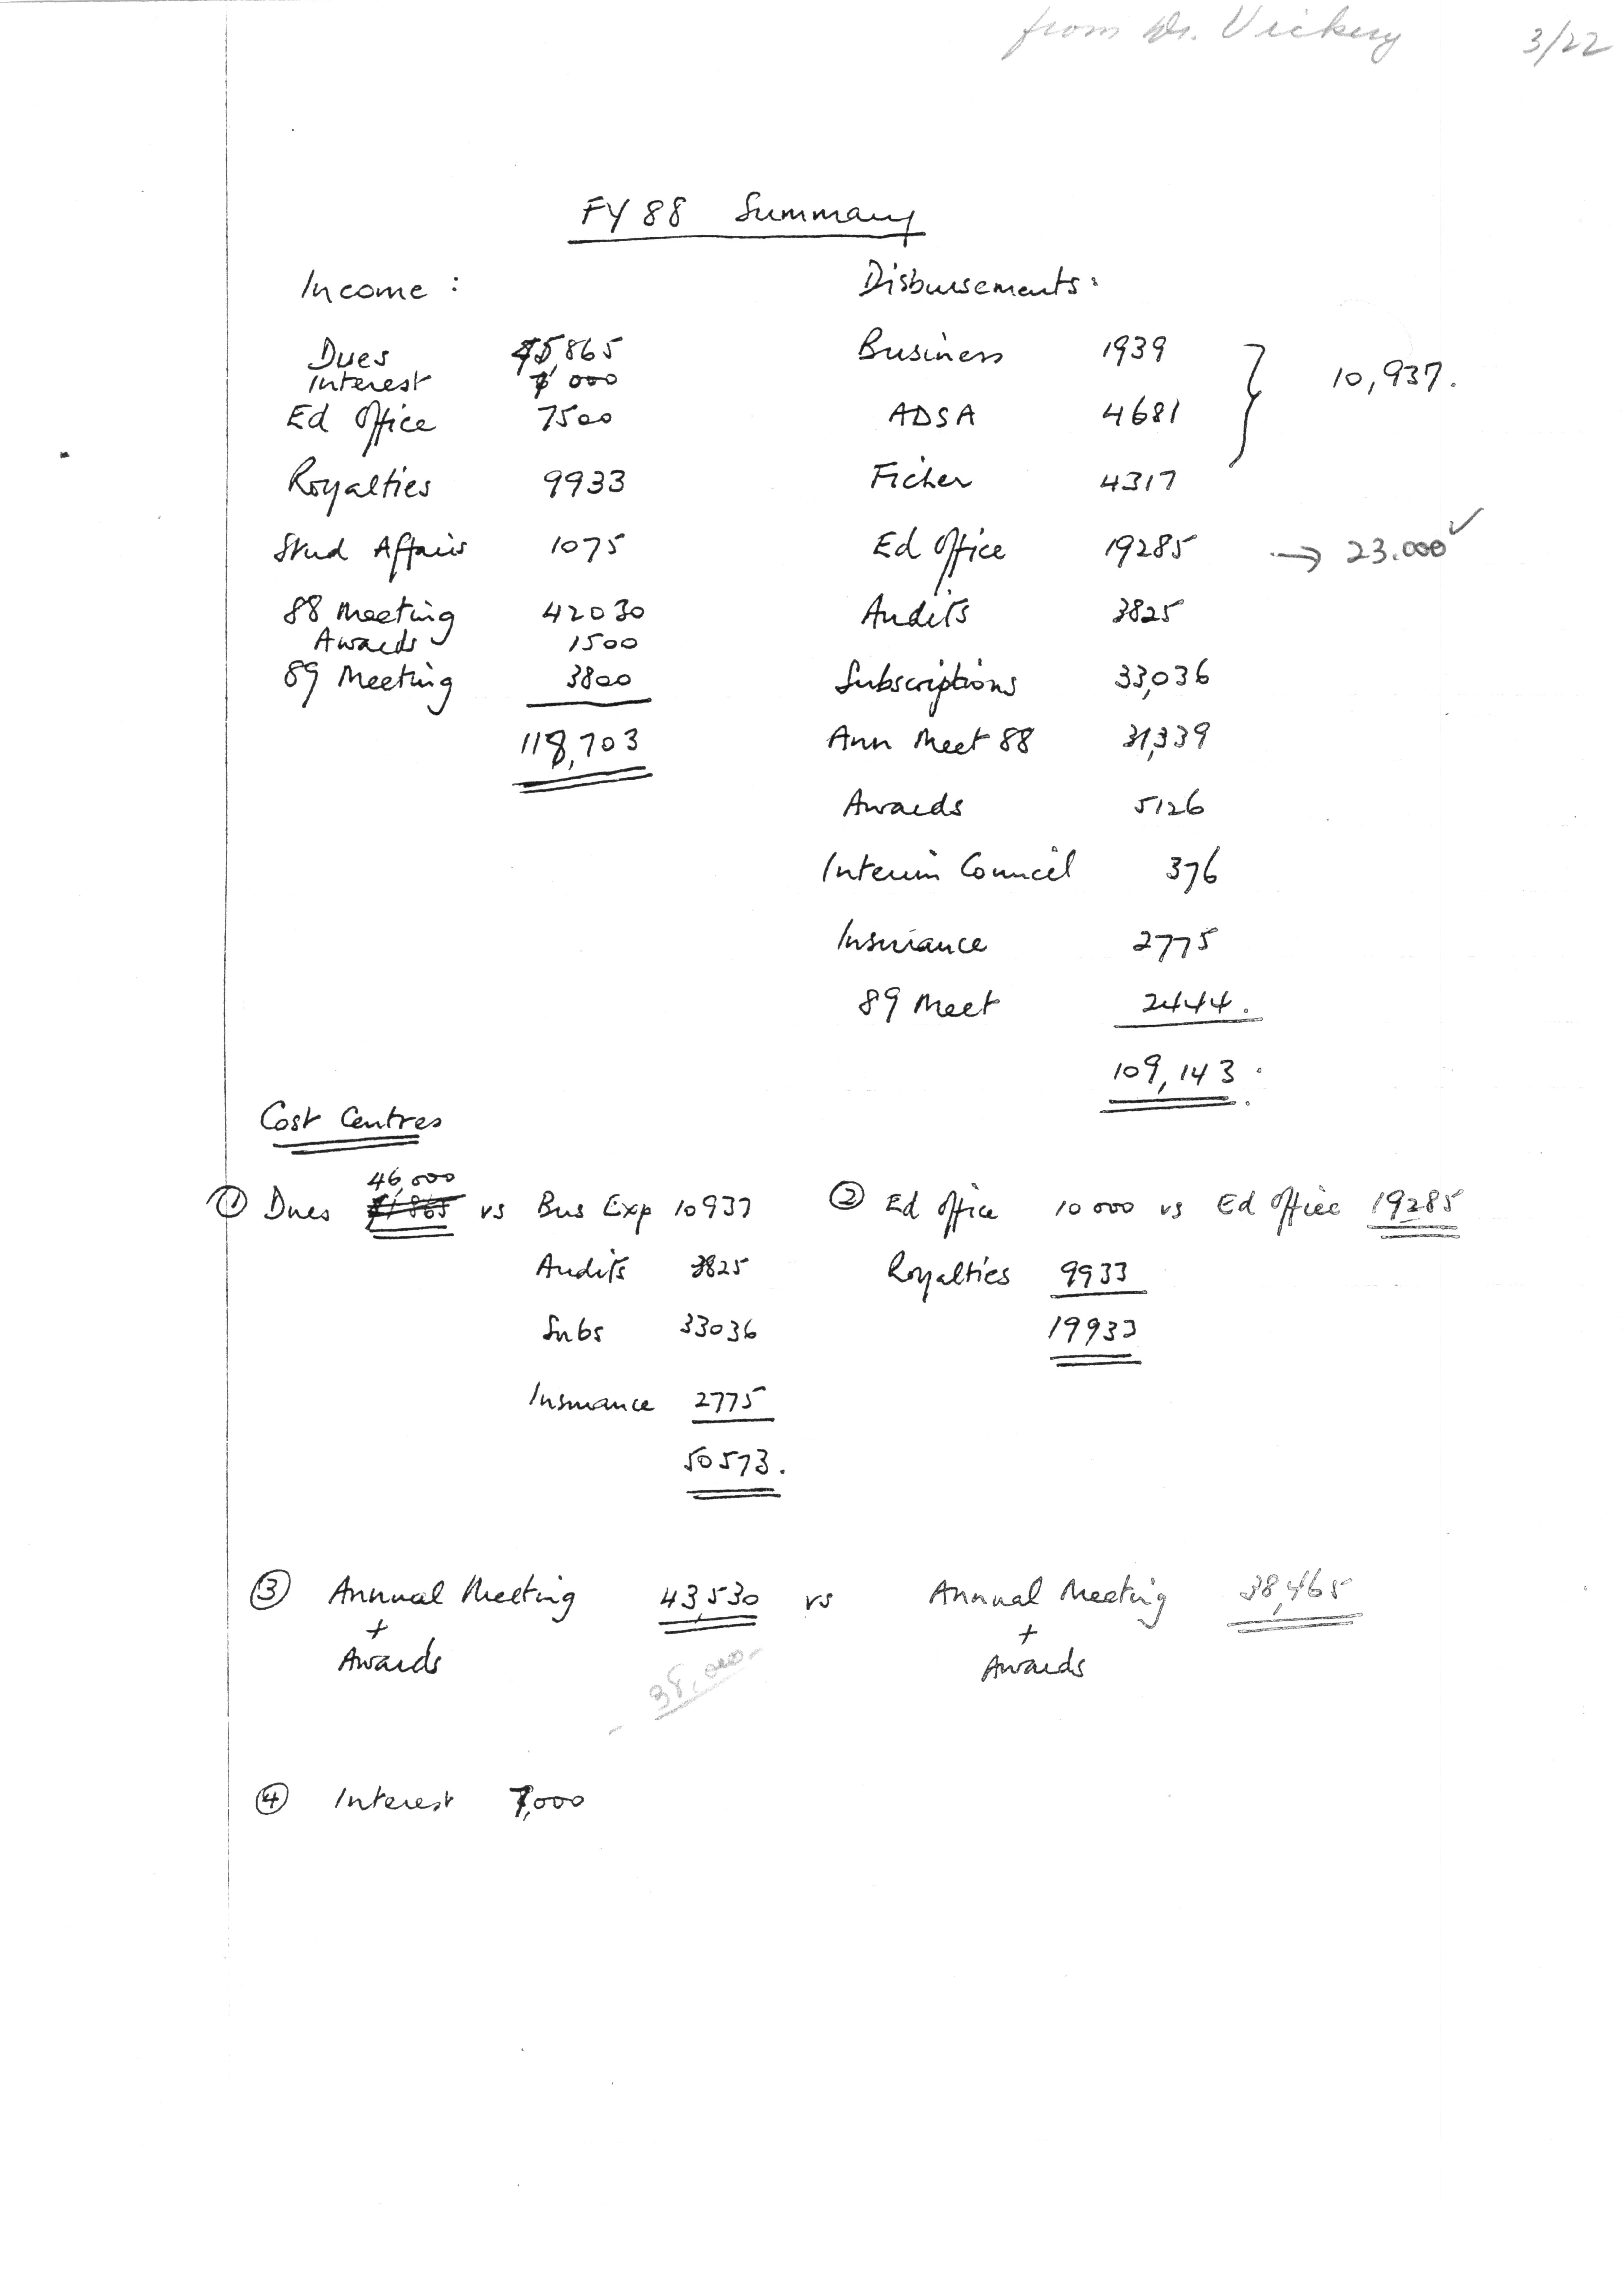 from Dr. Vickery 3/22
FY 88 Summary
Income : Disbursements:
Dues 45,865 Business 1939
Interest 7,000 10,937.
Ed Office 7500 ADSA 4681
Royalties 9933 Ficher 4317
Stud Affairs 1075 Ed Office 19285 → 23.000 ✓
88 Meeting 42030 Audits 3825
Awards 1500
89 Meeting 3800 Subscriptions 33,036
118,703 Ann Meet 88 31,339
Awards 5126
Interim Council 376
Insurance 2775
89 Meet 2444.
109,143.
Cost Centres
46,000
① Dues vs Bus Exp 10937 ② Ed Office 10000 vs Ed Office 19285
Audits 3825 Royalties 9933
Subs 33036 19933
Insurance 2775
50573.
③ Annual Meeting 43,530 vs Annual Meeting 38,465
+ +
Awards Awards
- 38,000-
④ Interest 7,000